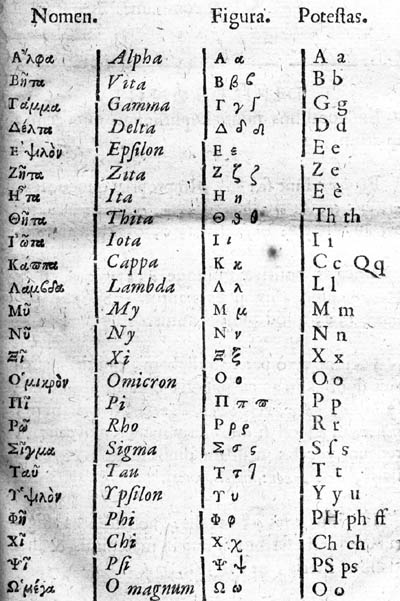 Nomen. Figura. Poteſtas.
Α῎λφα Alpha Α α A a
Βῆτα Vita Β β ϐ B b
Γάμμα Gamma Γ γ G g
Δέλτα Delta Δ δ D d
Ε᾿ψιλὸν Epſilon Ε ε E e
Ζῆτα Zita Ζ ζ ζ Z e
Η῏τα Ita Η η E è
Θῆτα Thita Θ ϑ θ Th th
Ι᾿ῶτα Iota Ι ι I i
Κάππα Cappa Κ κ C c Q q
Λάμβδα Lambda Λ λ L l
Μῦ My Μ μ M m
Νῦ Ny Ν ν N n
Ξῖ Xi Ξ ξ X x
Ο᾿μικρὸν Omicron Ο ο O o
Πῖ Pi Π π ϖ P p
Ρῶ Rho Ρ ρ ρ R r
Σῖγμα Sigma Σ σ ς S ſ s
Ταῦ Tau Τ τ T t
Υ᾿ψιλὸν Ypſilon Υ υ Y y u
Φῆ Phi Φ φ PH ph ff
Χῖ Chi Χ χ Ch ch
Ψῖ Pſi Ψ ψ PS ps
Ω᾿μέγα O magnum Ω ω O o